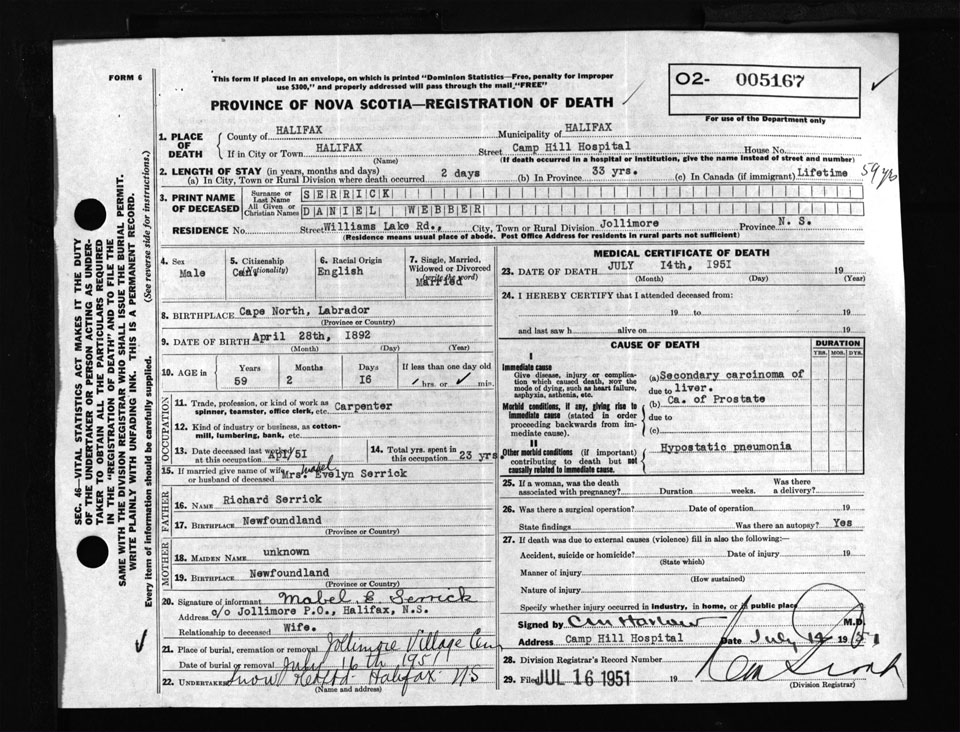 FORM 6
This form if placed in an envelope, on which is printed "Dominion Statistics—Free, penalty for improper
use $300," and properly addressed will pass through the mail "FREE"
PROVINCE OF NOVA SCOTIA—REGISTRATION OF DEATH
O2- 005167
For use of the Department only
SEC. 46—VITAL STATISTICS ACT MAKES IT THE DUTY
OF THE UNDERTAKER OR PERSON ACTING AS UNDER-
TAKER TO OBTAIN ALL THE PARTICULARS REQUIRED
IN THE "REGISTRATION OF DEATH" AND TO FILE THE
SAME WITH THE DIVISION REGISTRAR WHO SHALL ISSUE THE BURIAL PERMIT.
WRITE PLAINLY WITH UNFADING INK. THIS IS A PERMANENT RECORD.
Every item of information should be carefully supplied. (See reverse side for instructions.)
1. PLACE OF DEATH
County of HALIFAX Municipality of HALIFAX
If in City or Town HALIFAX Street Camp Hill Hospital House No.
(Name) (If death occurred in a hospital or institution, give the name instead of street and number)
2. LENGTH OF STAY (in years, months and days)
(a) In City, Town or Rural Division where death occurred 2 days (b) In Province 33 yrs. (c) In Canada (if immigrant) Lifetime 59 yrs
3. PRINT NAME OF DECEASED
Surname or Last Name SERRICK
All Given or Christian Names DANIEL WEBBER
RESIDENCE No. Street Williams Lake Rd., City, Town or Rural Division Jollimore Province N. S.
(Residence means usual place of abode. Post Office Address for residents in rural parts not sufficient)
4. Sex
Male
5. Citizenship
(Nationality)
Can.
6. Racial Origin
English
7. Single, Married,
Widowed or Divorced
(write the word)
Married
8. BIRTHPLACE Cape North, Labrador
(Province or Country)
9. DATE OF BIRTH April 28th, 1892
(Month) (Day) (Year)
10. AGE in
Years Months Days If less than one day old
59 2 16 hrs. or min.
OCCUPATION
11. Trade, profession, or kind of work as
spinner, teamster, office clerk, etc. Carpenter
12. Kind of industry or business, as cotton-
mill, lumbering, bank, etc.
13. Date deceased last worked
at this occupation Apl/51
14. Total yrs. spent in
this occupation 23 yrs.
15. If married give name of wife
or husband of deceased Mrs. Mabel Evelyn Serrick
FATHER
16. NAME Richard Serrick
17. BIRTHPLACE Newfoundland
(Province or Country)
MOTHER
18. MAIDEN NAME unknown
19. BIRTHPLACE Newfoundland
(Province or Country)
20. Signature of informant Mabel E. Serrick
Address c/o Jollimore P.O., Halifax, N.S.
Relationship to deceased Wife.
21. Place of burial, cremation or removal Jollimore Village Cem
Date of burial or removal July 16th 1951
22. UNDERTAKER Snow &Co Ltd- Halifax NS
(Name and address)
MEDICAL CERTIFICATE OF DEATH
23. DATE OF DEATH JULY 14th, 1951 19
(Month) (Day) (Year)
24. I HEREBY CERTIFY that I attended deceased from:
19 to 19
and last saw h alive on 19
CAUSE OF DEATH
DURATION
YRS. MOS. DYS.
I
Immediate cause
Give disease, injury or complica-
tion which caused death, NOT the
mode of dying, such as heart failure,
asphyxia, asthenia, etc.
(a) Secondary carcinoma of
due to liver.
Morbid conditions, if any, giving rise to
immediate cause (stated in order
proceeding backwards from im-
mediate cause).
(b) Ca. of Prostate
due to
(c)
II
Other morbid conditions (if important)
contributing to death but not
causally related to immediate cause.
Hypostatic pneumonia
25. If a woman, was the death
associated with pregnancy? Duration weeks. Was there
a delivery?
26. Was there a surgical operation? Date of operation 19
State findings Was there an autopsy? Yes
27. If death was due to external causes (violence) fill in also the following:—
Accident, suicide or homicide? Date of injury 19
(State which)
Manner of injury
(How sustained)
Nature of injury
Specify whether injury occurred in industry, in home, or in public place
Signed by M.D.
Address Camp Hill Hospital Date July 19 51
28. Division Registrar's Record Number
29. Filed JUL 16 1951 19
(Division Registrar)